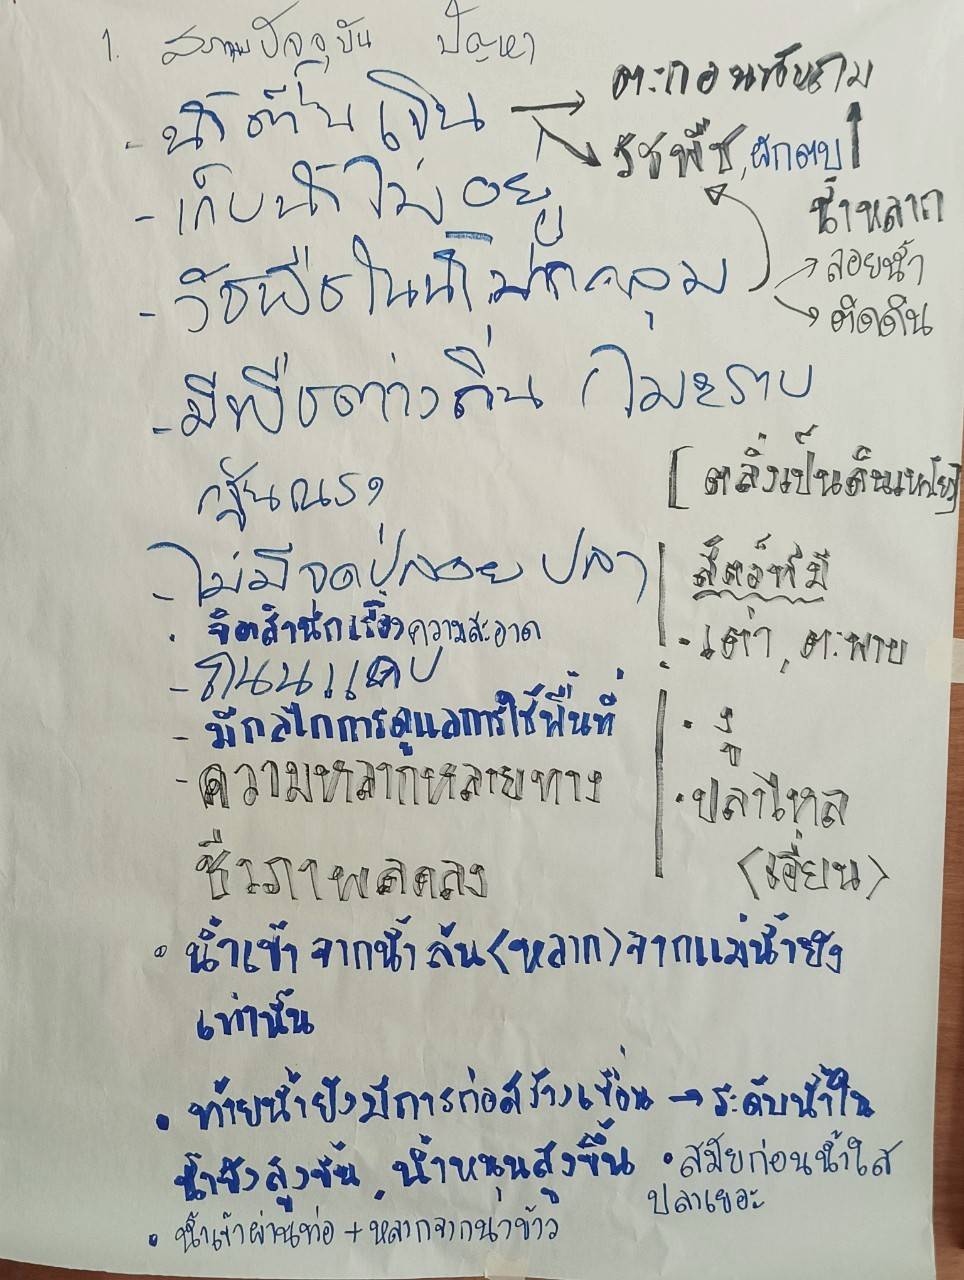 1. สภาพปัจจุบัน ปัญหา
- น้ำตื้นเขิน → ตะกอนทับถม
วัชพืช, ผักตบ
- เก็บน้ำไม่อยู่
น้ำหลาก
- วัชพืชในน้ำปกคลุม
ลอยน้ำ
ติดดิน
- มีพืชต่างถิ่น ไมยราบ
[ตลิ่งเป็นดินเหนียว]
- ไม่มีจุดปล่อยปลา
สัตว์ที่มี
· จิตสำนึกเรื่องความสะอาด
- เต่า, ตะพาบ
- ถนนแคบ
- มีกลไกการดูแลการใช้พื้นที่
· งู
- ความหลากหลายทาง
· ปลาไหล
ชีวภาพลดลง
(เอี่ยน)
· น้ำเข้า จากน้ำล้น (หลาก) จากแม่น้ำยัง
เท่านั้น
· ท้ายน้ำยังมีการก่อสร้างเขื่อน → ระดับน้ำใน
น้ำยังสูงขึ้น, น้ำหนุนสูงขึ้น
· สมัยก่อนน้ำใส
ปลาเยอะ
· น้ำเข้าผ่านท่อ + หลากจากนาข้าว